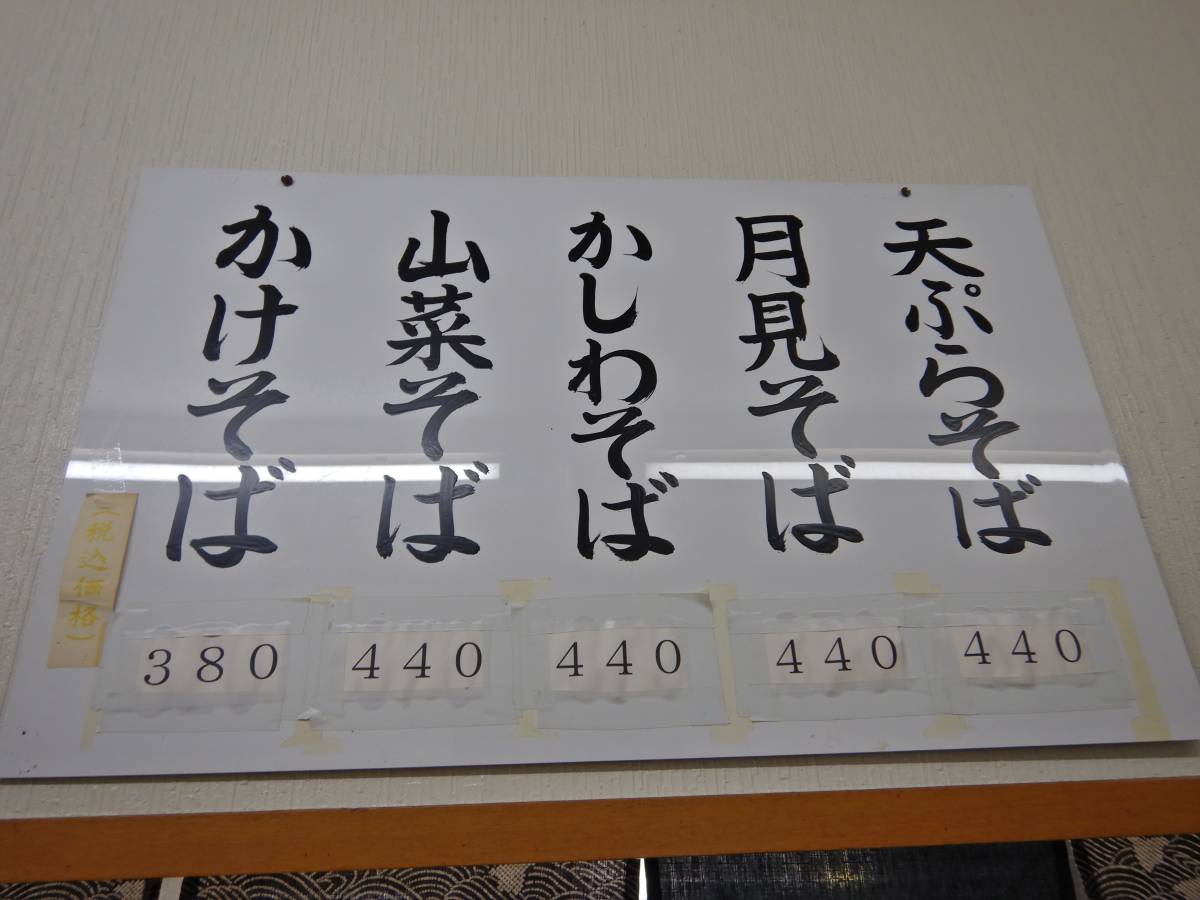 天ぷらそば
440
月見そば
440
かしわそば
440
山菜そば
440
かけそば
380
(税込価格)